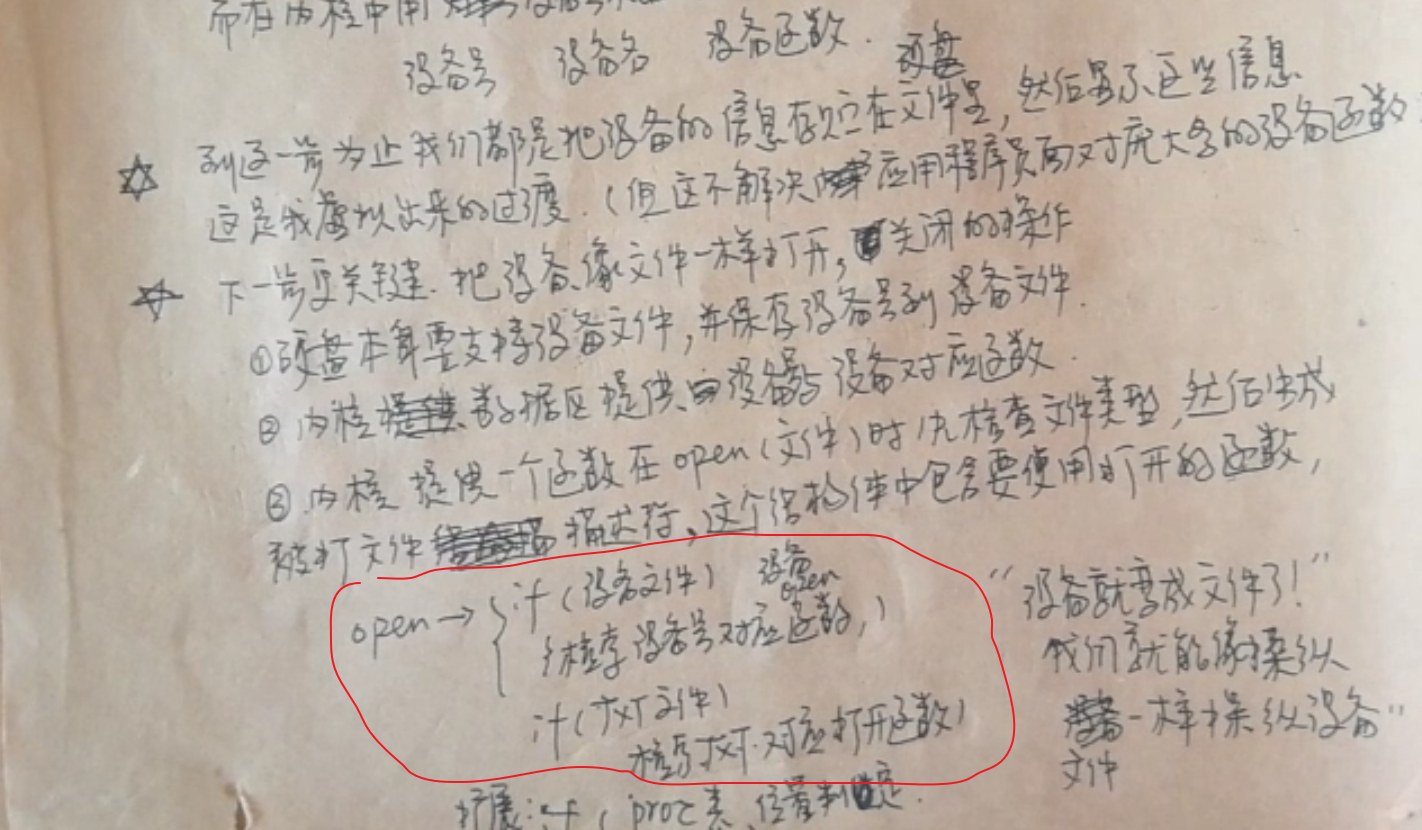 而在内核中用
设备号 设备名 设备函数.
硬盘
到这一步为止我们都是把设备的信息存贮在文件里,然后显示这些信息
这是我虚拟出来的过度.(但这不解决应用程序员面对庞大多的设备函数
下一步更关键.把设备像文件一样打开,关闭的操作
①硬盘本身要支持设备文件,并保存设备号到设备文件.
②内核数据区提供设备号与设备对应函数.
③内核提供一个函数在open(文件)时候检查文件类型,然后生成
被打文件描述符,这个结构体中包含要使用打开的函数,
open→{if(设备文件) 设备open
{核查设备号对应函数,}
if(txt文件)
核查txt.对应打开函数)
"设备就变成文件了!"
我们就能像操纵
一样操纵设备"
文件
扩展:if(proc类